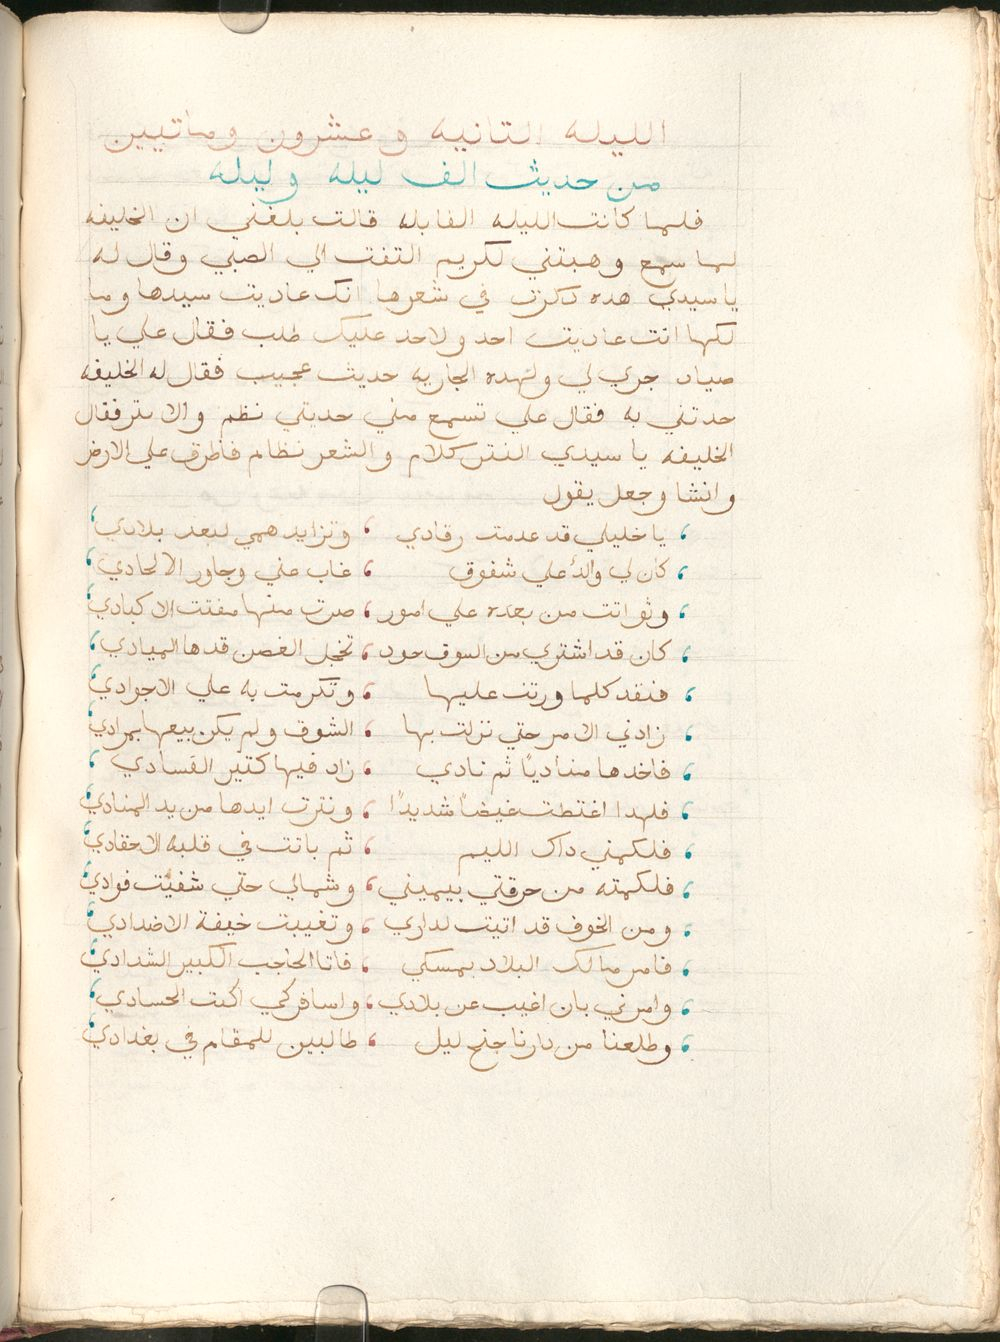 الليله التانيه وعشرون وماتيين
من حديث الف ليله وليله
فلما كانت الليله القابله قالت بلغني ان الخليفه
لما سمع وهبتني لكريم التفت الي الصبي وقال له
يا سيدي هده دكرت في شعرها انك عاديت سيدها وما
لكها انت عاديت احد ولاحد عليك طلب فقال علي يا
صياد جري لي ولهده الجاريه حديث عجيب فقال له الخليفه
حدتني به فقال علي تسمع مني حديتي نظم والا نتر فقال
الخليفه يا سيدي النتر كلام والشعر نظام فاطرق علي الارض
وانشا وجعل يقول
يا خليلي قد عدمت رقادي ، وتزايد همي لبعد بلادي ،
كان لي والدٌ علي شفوق ، غاب عني وجاور الالحادي ،
وثم اتت من بعده علي امور ، صرت منها مفتت الاكبادي ،
كان قد اشتري من السوق خود ، تخجل الغصن قدها الميادي ،
فنقد كلما ورتت عليها ، وتكرمت به علي الاجوادي ،
زادني الامر حتي نزلت بها ، الشوق ولم يكن بيعها بمرادي ،
فاخدها مناديًا ثم نادي ، زاد فيها كتير الفسادي ،
فلهدا اغتظت غيضًا شديدًا ، ونترت ايدها من يد المنادي ،
فلكمني داك الليم ، ثم باتت في قلبه الاحقادي ،
فلكمته من حرقتي بيميني ، وشمالي حتي شفيت فوادي ،
ومن الخوف قد اتيت لداري ، وتغيبت خيفة الاضدادي ،
فامر مالك البلاد بمسكي ، فاتا الحاجب الكبير الشدادي ،
وامرني بان اغيب عن بلادي ، واسافر كي اكبت الحسادي ،
وطلعنا من دارنا جنح ليل ، طالبين للمقام في بغدادي ،